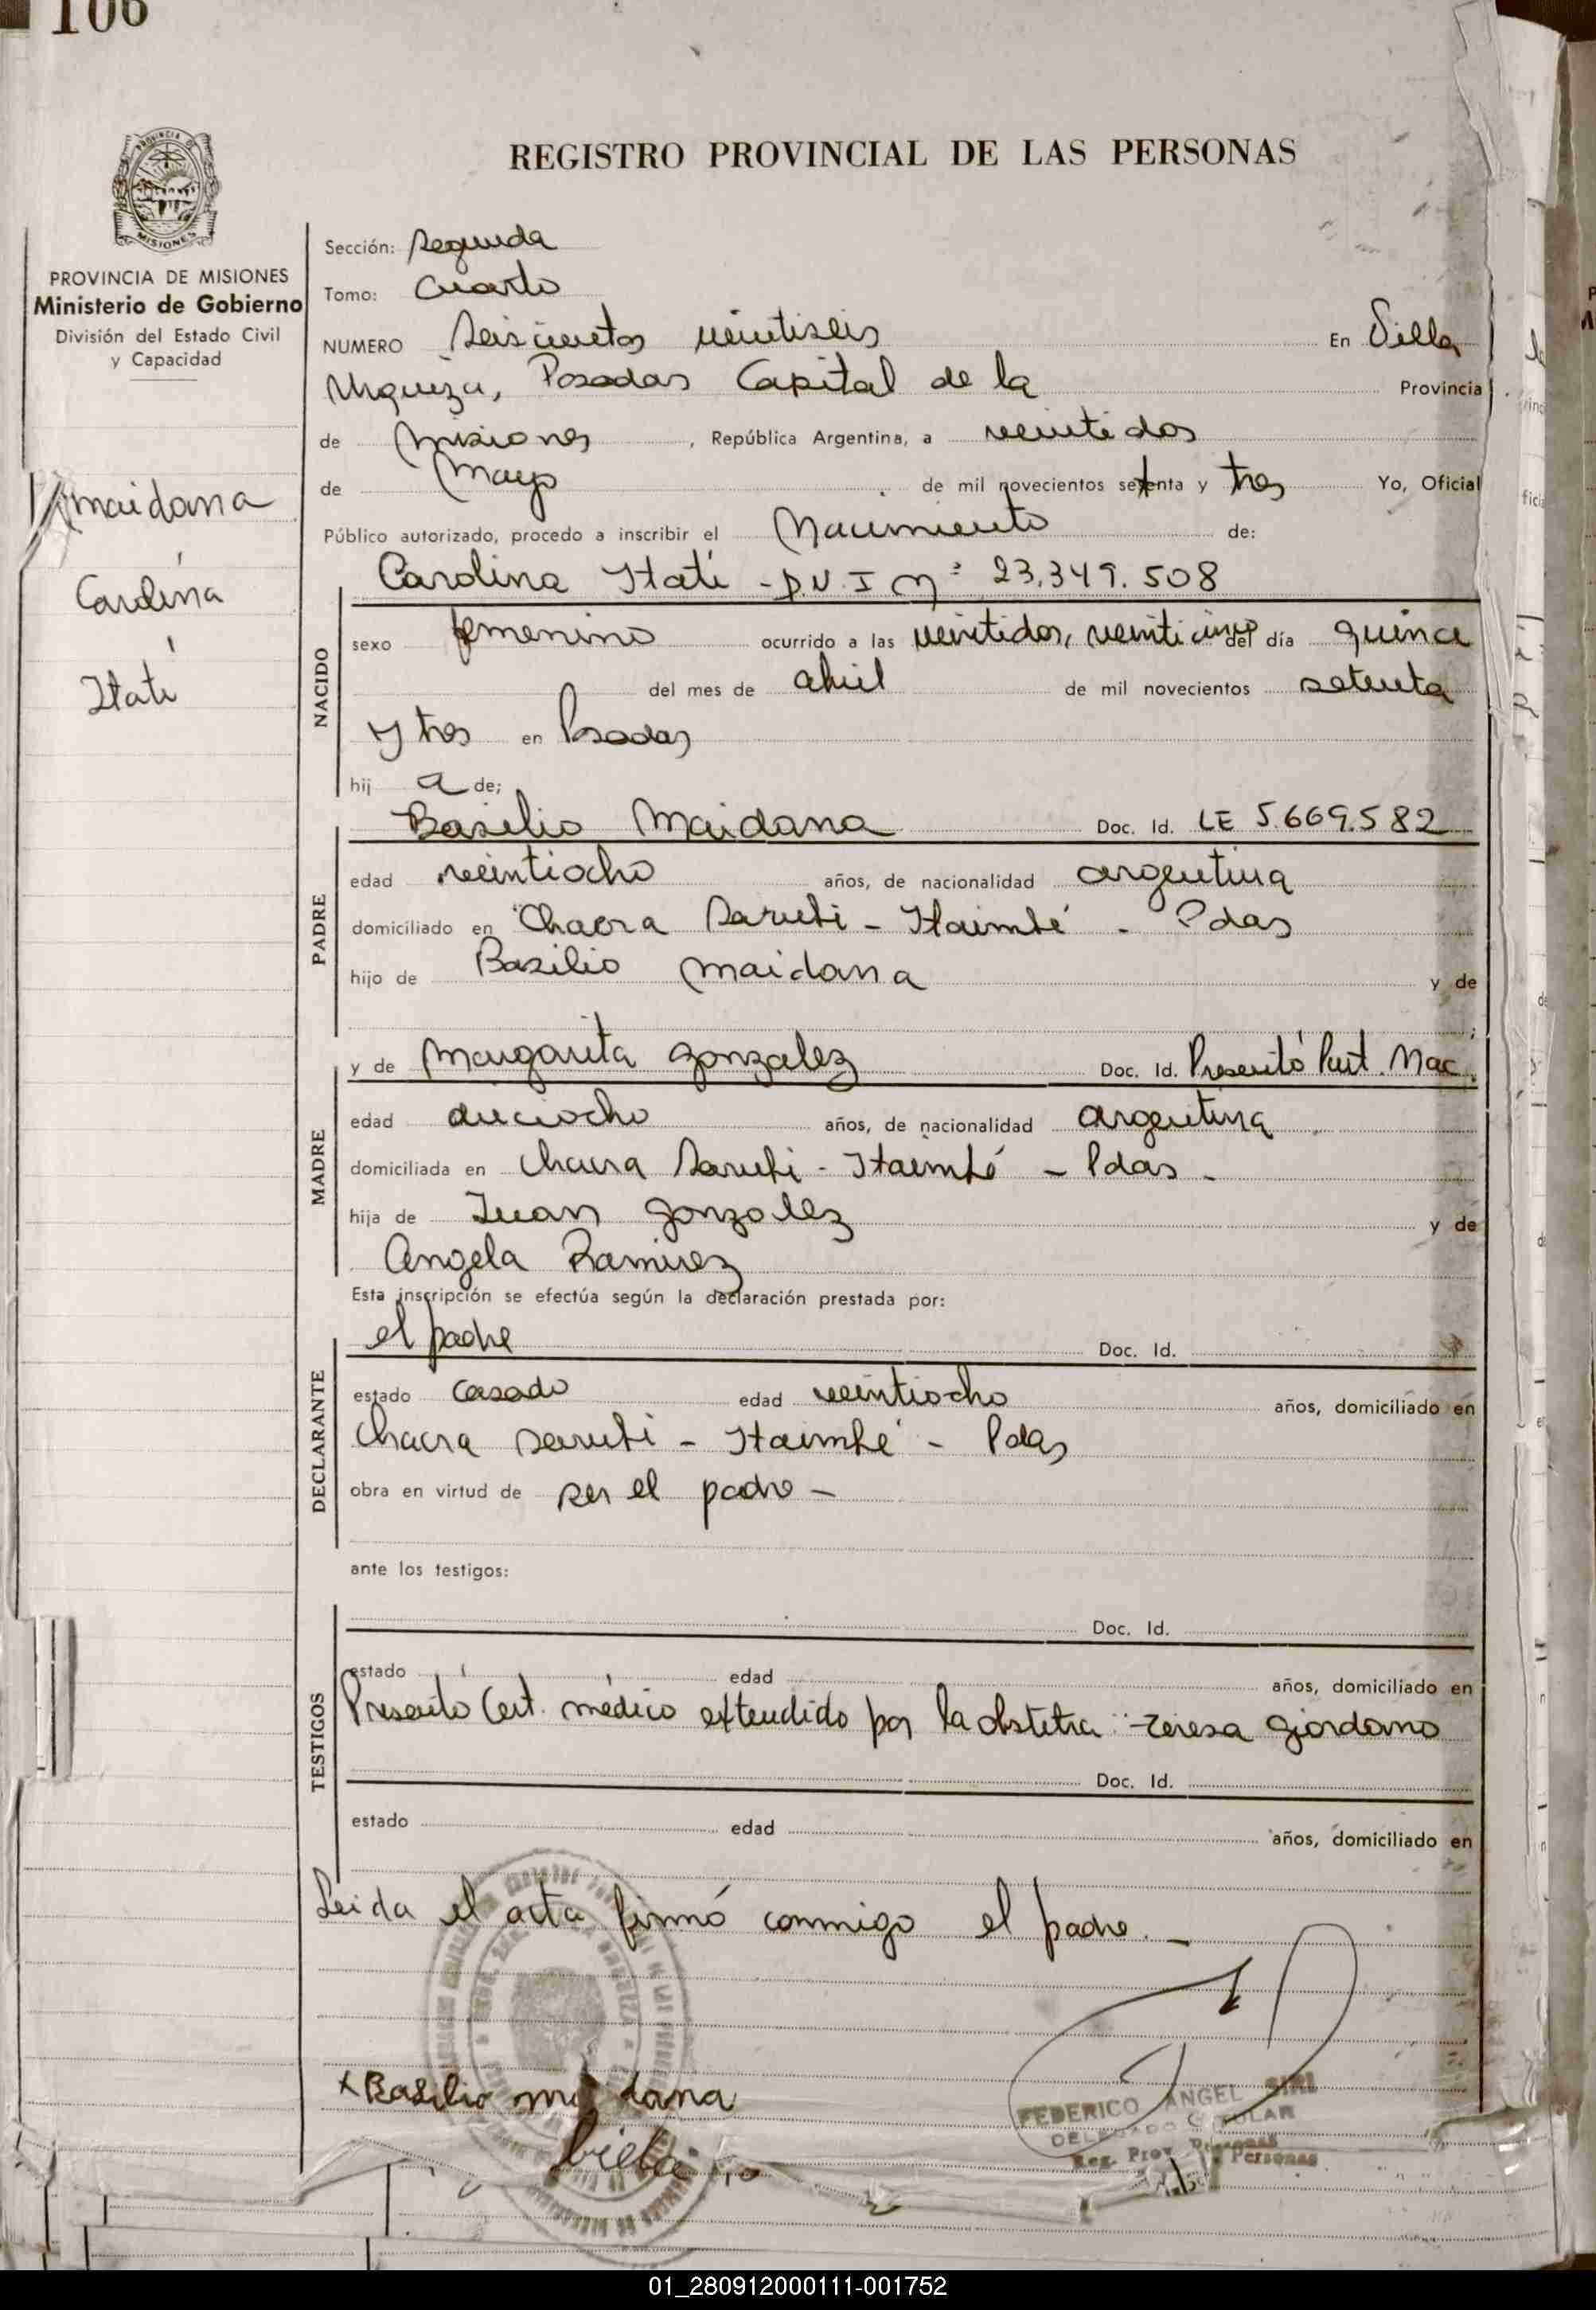 106
REGISTRO PROVINCIAL DE LAS PERSONAS
PROVINCIA DE MISIONES
Ministerio de Gobierno
División del Estado Civil
y Capacidad
Maidana
Carolina
Itatí
Sección: Segunda
Tomo: Cuarto
NUMERO Seiscientos veintiseis En Villa
Urquiza, Posadas Capital de la Provincia
de Misiones, República Argentina, a veintidos
de Mayo de mil novecientos setenta y tres Yo, Oficial
Público autorizado, procedo a inscribir el Nacimiento de:
Carolina Itatí - D.N.I Nº 23.349.508
NACIDO
sexo femenino ocurrido a las veintidos, veinticinco del día quince
del mes de abril de mil novecientos setenta
y tres en Posadas
hij a de;
PADRE
Basilio Maidana Doc. Id. LE 5.669.582
edad veintiocho años, de nacionalidad argentina
domiciliado en Chacra Sarubi - Itaimbé - Pdas
hijo de Basilio Maidana y de
MADRE
y de Margarita Gonzalez Doc. Id. Presentó Part. Nac.
edad dieciocho años, de nacionalidad argentina
domiciliada en Chacra Sarubi - Itaimbé - Pdas -
hija de Juan Gonzalez y de
Angela Ramirez
Esta inscripción se efectúa según la declaración prestada por:
DECLARANTE
el padre Doc. Id.
estado casado edad veintiocho años, domiciliado en
Chacra Sarubi - Itaimbé - Pdas
obra en virtud de ser el padre -
ante los testigos:
TESTIGOS
Doc. Id.
estado edad años, domiciliado en
Presentó Cert. médico extendido por la obstetra Teresa Giordano
Doc. Id.
estado edad años, domiciliado en
Leida el acta firmó conmigo el padre. -
x Basilio maidana
FEDERICO ANGEL SIRI
DELEGADO TITULAR
Reg. Prov. Personas
01_280912000111-001752